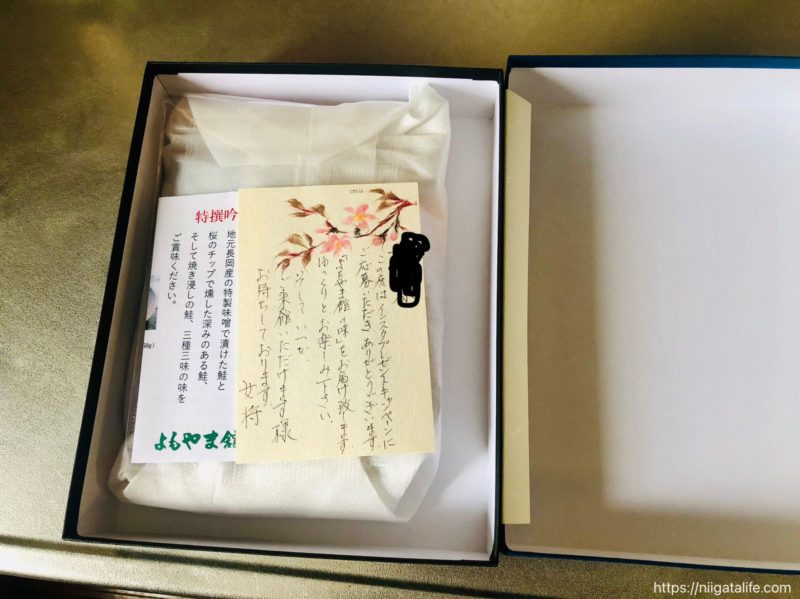 (さくら)
この度はインスタプレゼントキャンペーンに
ご応募いただき ありがとうございます。
「よもやま館の味」をお届け致します
ゆっくりとお楽しみ下さい。
そして いつか、
ご来館いただけます様
お待ちしております。
女将
特撰吟
地元長岡産の特製味噌で漬けた鮭と
桜のチップで燻した深みのある鮭、
そして焼き浸しの鮭、三種三味の味を
ご賞味ください。
よもやま館
https://niigatalife.com